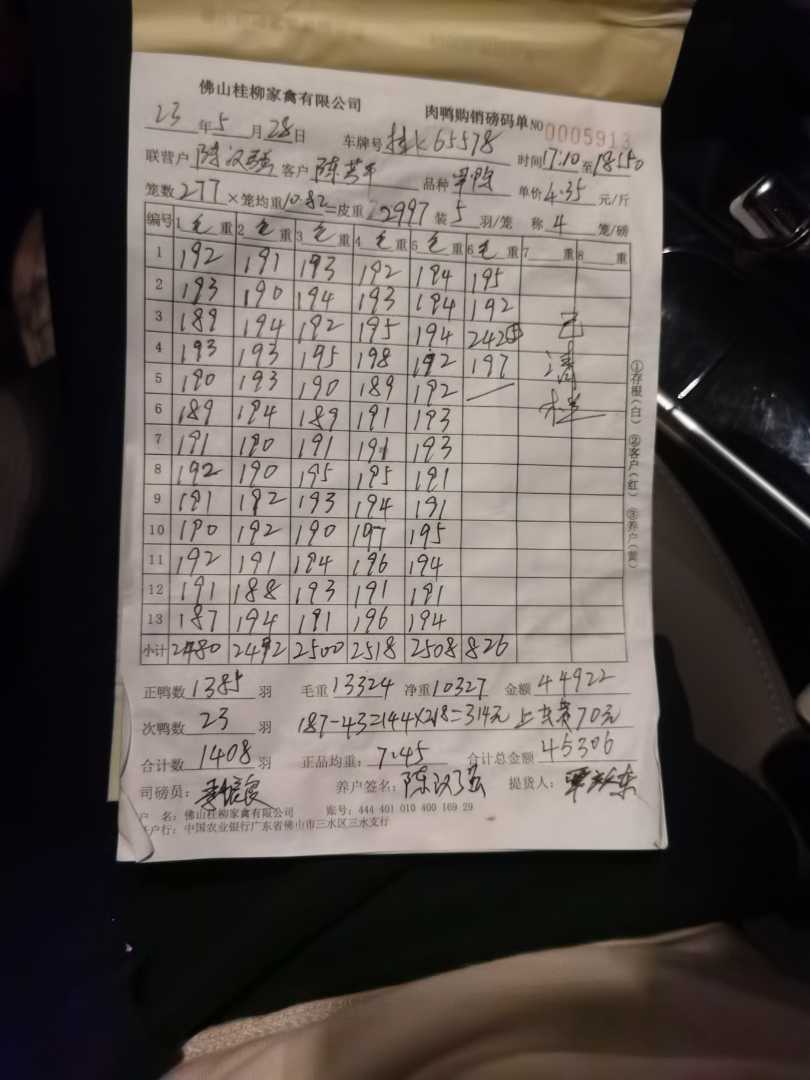 佛山桂柳家禽有限公司 肉鸭购销磅码单 NO 0005913
23年5月28日 车牌号 桂K65578 时间17:10至18:50
联营户 陈汉强 客户 陈芳平 品种 单鸭 单价 4.35 元/斤
笼数 277 ×笼均重 10.82 =皮重 2997 装 5 羽/笼 称 4 笼/磅
编号 1毛重 2毛重 3毛重 4毛重 5毛重 6毛重 7 重 8 重
1 192 191 193 192 194 195
2 193 190 194 193 194 192
3 189 194 192 195 194 242⑤ 已
4 193 193 195 198 192 197 清
5 190 193 190 189 192 — 楚
6 189 194 189 191 193
7 191 190 191 191 193
8 192 190 195 195 191
9 191 192 193 194 191
10 190 192 190 197 195
11 192 191 194 196 194
12 191 188 193 191 191
13 187 194 191 196 194
小计 2480 2492 2500 2518 2508 826
①存根(白) ②客户(红) ③养户(黄)
正鸭数 1385 羽 毛重 13324 净重 10327 金额 44922
次鸭数 23 羽 187-43=144×218=314元 上车费70元
合计数 1408 羽 正品均重: 7.45 合计总金额 45306
司磅员: 养户签名: 陈汉强 提货人:
户 名: 佛山桂柳家禽有限公司 账号: 444 401 010 400 169 29
开户行: 中国农业银行广东省佛山市三水区三水支行